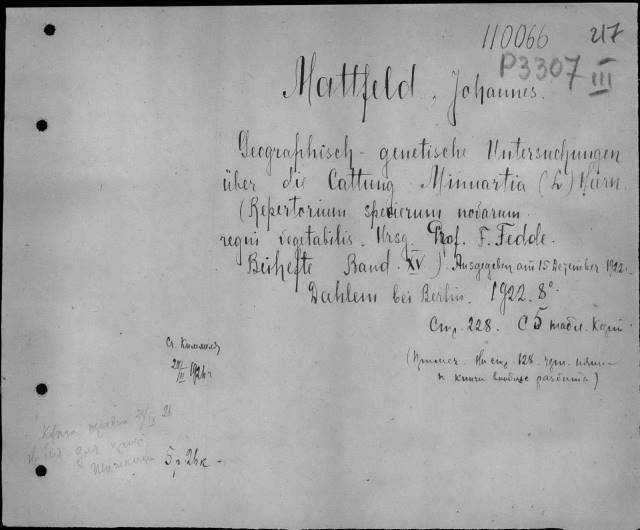 110066 217
P3307 III
Mattfeld, Johannes.
Geographisch-genetische Untersuchungen
über die Gattung Minuartia (L) Hiern.
(Repertorium specierum novarum
regni vegetabilis. Hrsg. Prof. F. Fedde.
Beihefte Band. XV) Ausgegeben am 15 Dezember 1922.
Dahlem bei Berlin. 1922. 8°.
Стр. 228. С 5 табл. Карт
(Примеч. На стр. 128
и книга вообще разбита)
III 1926 г
5 р 26 к -